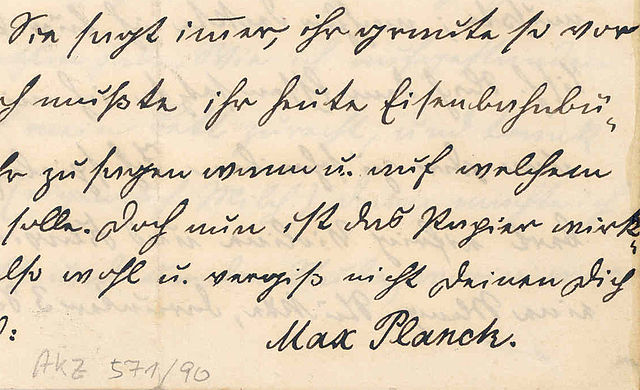 Sie sagt immer, ihr graute so vor
ch mußte ihr heute Eisenbahnbü-
hr zu sagen wann u. auf welchem
solle. Doch nun ist das Papier wirk-
lso wohl u. vergiß nicht Deinen Dich
:
Max Planck.
AKZ 571/90